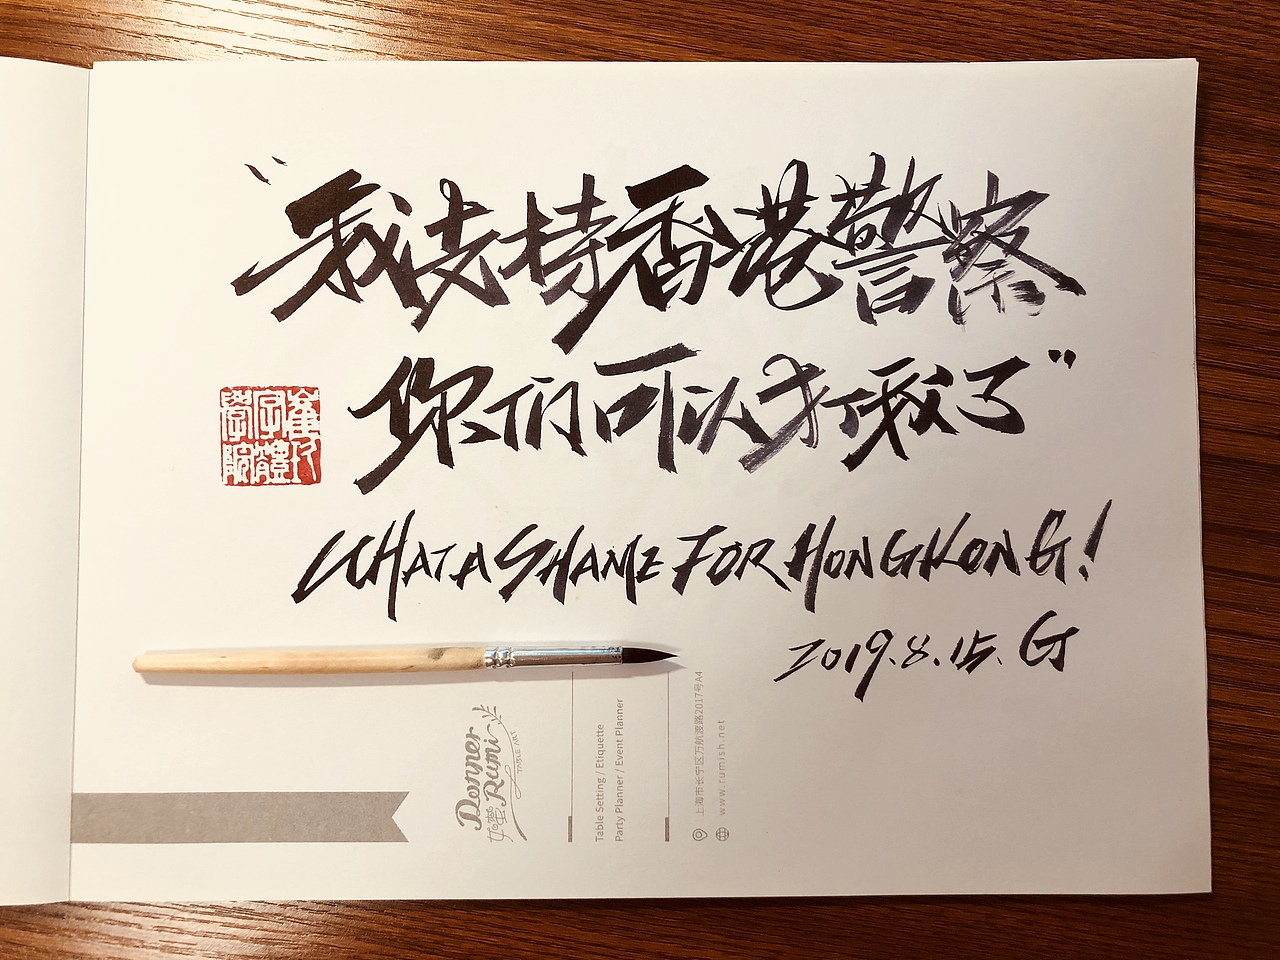 “我支持香港警察
你们可以打我了”
WHAT A SHAME FOR HONGKONG!
2019.8.15. G
崔巧
字體
學院
Donner
Rumi
如蜜
TABLE ART
Table Setting / Etiquette
Party Planner / Event Planner
上海市长宁区万航渡路2017号A4
www.rumish.net